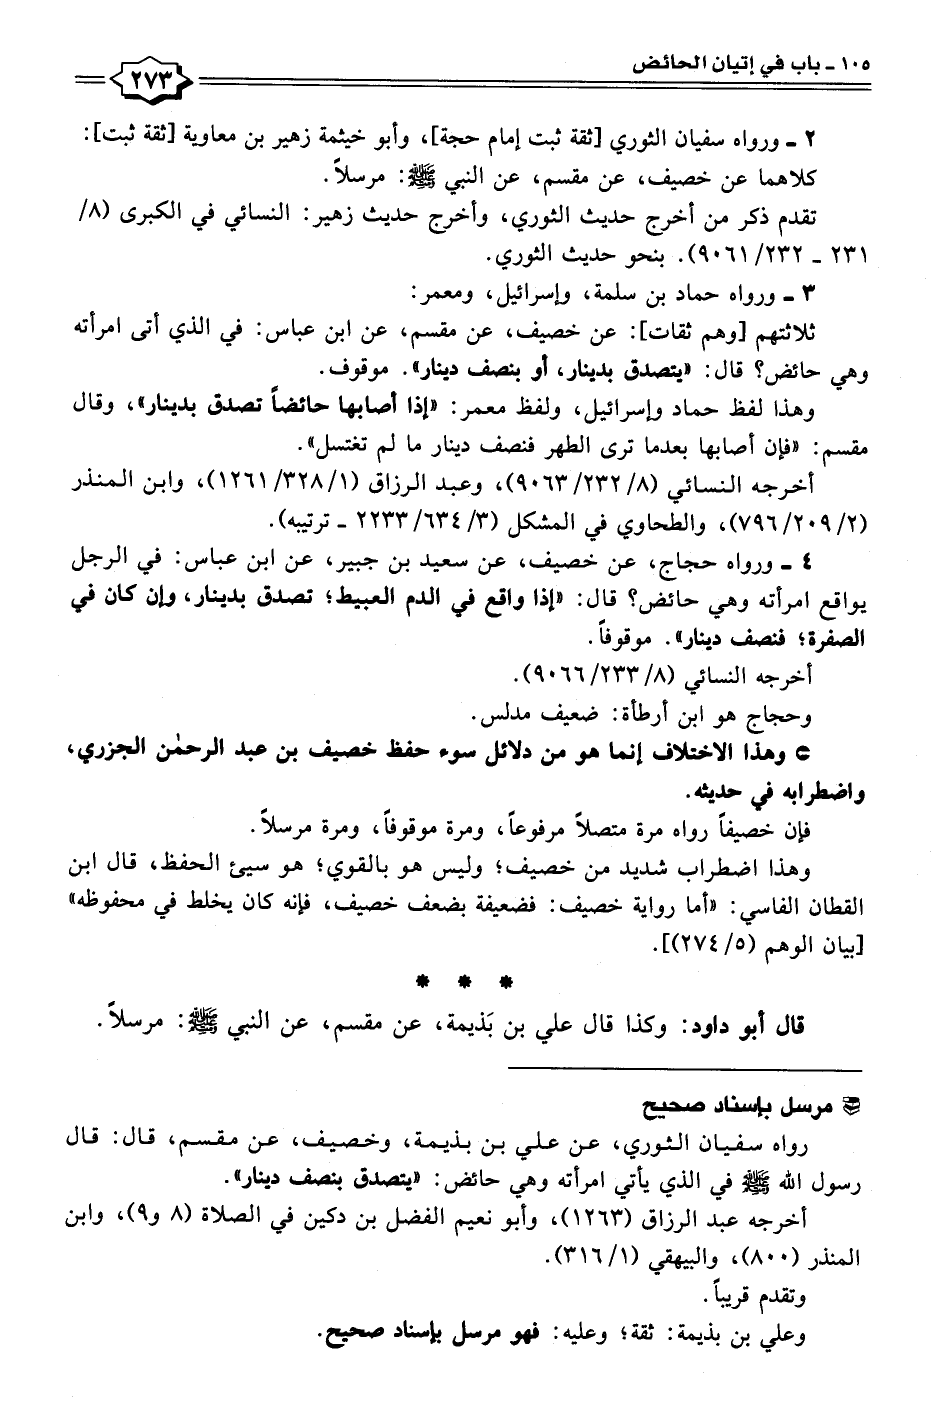 ١٠٥ - باب في إتيان الحائض
٢٧٣
٢ - ورواه سفيان الثوري [ثقة ثبت إمام حجة]، وأبو خيثمة زهير بن معاوية [ثقة ثبت]:
كلاهما عن خصيف، عن مقسم، عن النبي ﷺ: مرسلاً.
تقدم ذكر من أخرج حديث الثوري، وأخرج حديث زهير: النسائي في الكبرى (٨/
٢٣١ - ٢٣٢/ ٩٠٦١). بنحو حديث الثوري.
٣ - ورواه حماد بن سلمة، وإسرائيل، ومعمر:
ثلاثتهم [وهم ثقات]: عن خصيف، عن مقسم، عن ابن عباس: في الذي أتى امرأته
وهي حائض؟ قال: «يتصدق بدينار، أو بنصف دينار». موقوف.
وهذا لفظ حماد وإسرائيل، ولفظ معمر: «إذا أصابها حائضاً تصدق بدينار»، وقال
مقسم: «فإن أصابها بعدما ترى الطهر فنصف دينار ما لم تغتسل».
أخرجه النسائي (٨/ ٢٣٢/ ٩٠٦٣)، وعبد الرزاق (١/ ٣٢٨/ ١٢٦١)، وابن المنذر
(٢/ ٢٠٩/ ٧٩٦)، والطحاوي في المشكل (٣/ ٦٣٤/ ٢٢٣٣ - ترتيبه).
٤ - ورواه حجاج، عن خصيف، عن سعيد بن جبير، عن ابن عباس: في الرجل
يواقع امرأته وهي حائض؟ قال: «إذا واقع في الدم العبيط؛ تصدق بدينار، وإن كان في
الصفرة؛ فنصف دينار». موقوفاً.
أخرجه النسائي (٨/ ٢٣٣/ ٩٠٦٦).
وحجاج هو ابن أرطأة: ضعيف مدلس.
وهذا الاختلاف إنما هو من دلائل سوء حفظ خصيف بن عبد الرحمٰن الجزري،
واضطرابه في حديثه.
فإن خصيفاً رواه مرة متصلاً مرفوعاً، ومرة موقوفاً، ومرة مرسلاً.
وهذا اضطراب شديد من خصيف؛ وليس هو بالقوي؛ هو سيئ الحفظ، قال ابن
القطان الفاسي: «أما رواية خصيف: فضعيفة بضعف خصيف، فإنه كان يخلط في محفوظه»
[بيان الوهم (٥/ ٢٧٤)].
* * *
قال أبو داود: وكذا قال علي بن بَذيمة، عن مقسم، عن النبي ﷺ: مرسلاً.
مرسل بإسناد صحيح
رواه سفيان الثوري، عن علي بن بذيمة، وخصيف، عن مقسم، قال: قال
رسول الله ﷺ في الذي يأتي امرأته وهي حائض: «يتصدق بنصف دينار».
أخرجه عبد الرزاق (١٢٦٣)، وأبو نعيم الفضل بن دكين في الصلاة (٨ و٩)، وابن
المنذر (٨٠٠)، والبيهقي (١/ ٣١٦).
وتقدم قريباً.
وعلي بن بذيمة: ثقة؛ وعليه: فهو مرسل بإسناد صحيح.